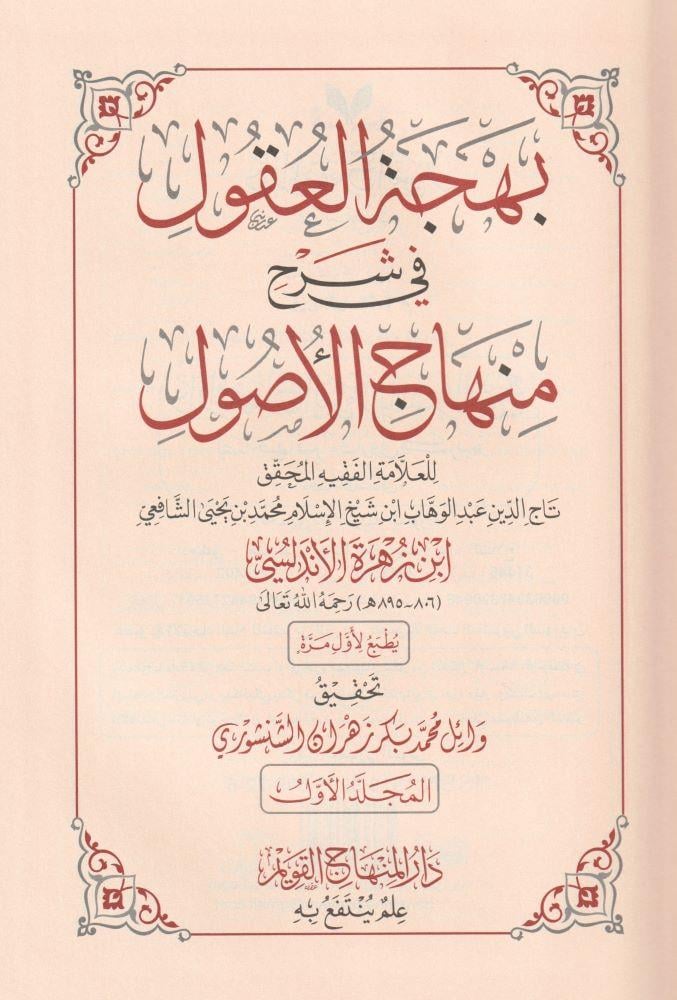 بَهْجَةُ العُقُولِ
فِي شَرْحِ
مِنْهَاجِ الأُصُولِ
لِلْعَلَّامَةِ الفَقِيهِ المُحَقِّقِ
تَاجِ الدِّينِ عَبْدِ الوَهَّابِ ابْنِ شَيْخِ الإِسْلَامِ مُحَمَّدِ بْنِ يَحْيَىٰ الشَّافِعِيِّ
ابْنِ زُهْرَةَ الأَنْدَلُسِيِّ
(٨٠٦-٨٩٥هـ) رَحِمَهُ اللهُ تَعَالَىٰ
يُطْبَعُ لِأَوَّلِ مَرَّةٍ
تَحْقِيقُ
وَائِل مُحَمَّد بَكْر زَهْرَان الشَّنْشُورِيّ
المُجَلَّدُ الأَوَّلُ
دَارُ المِنْهَاجِ القَوِيمِ
عِلْمٌ يُنْتَفَعُ بِهِ